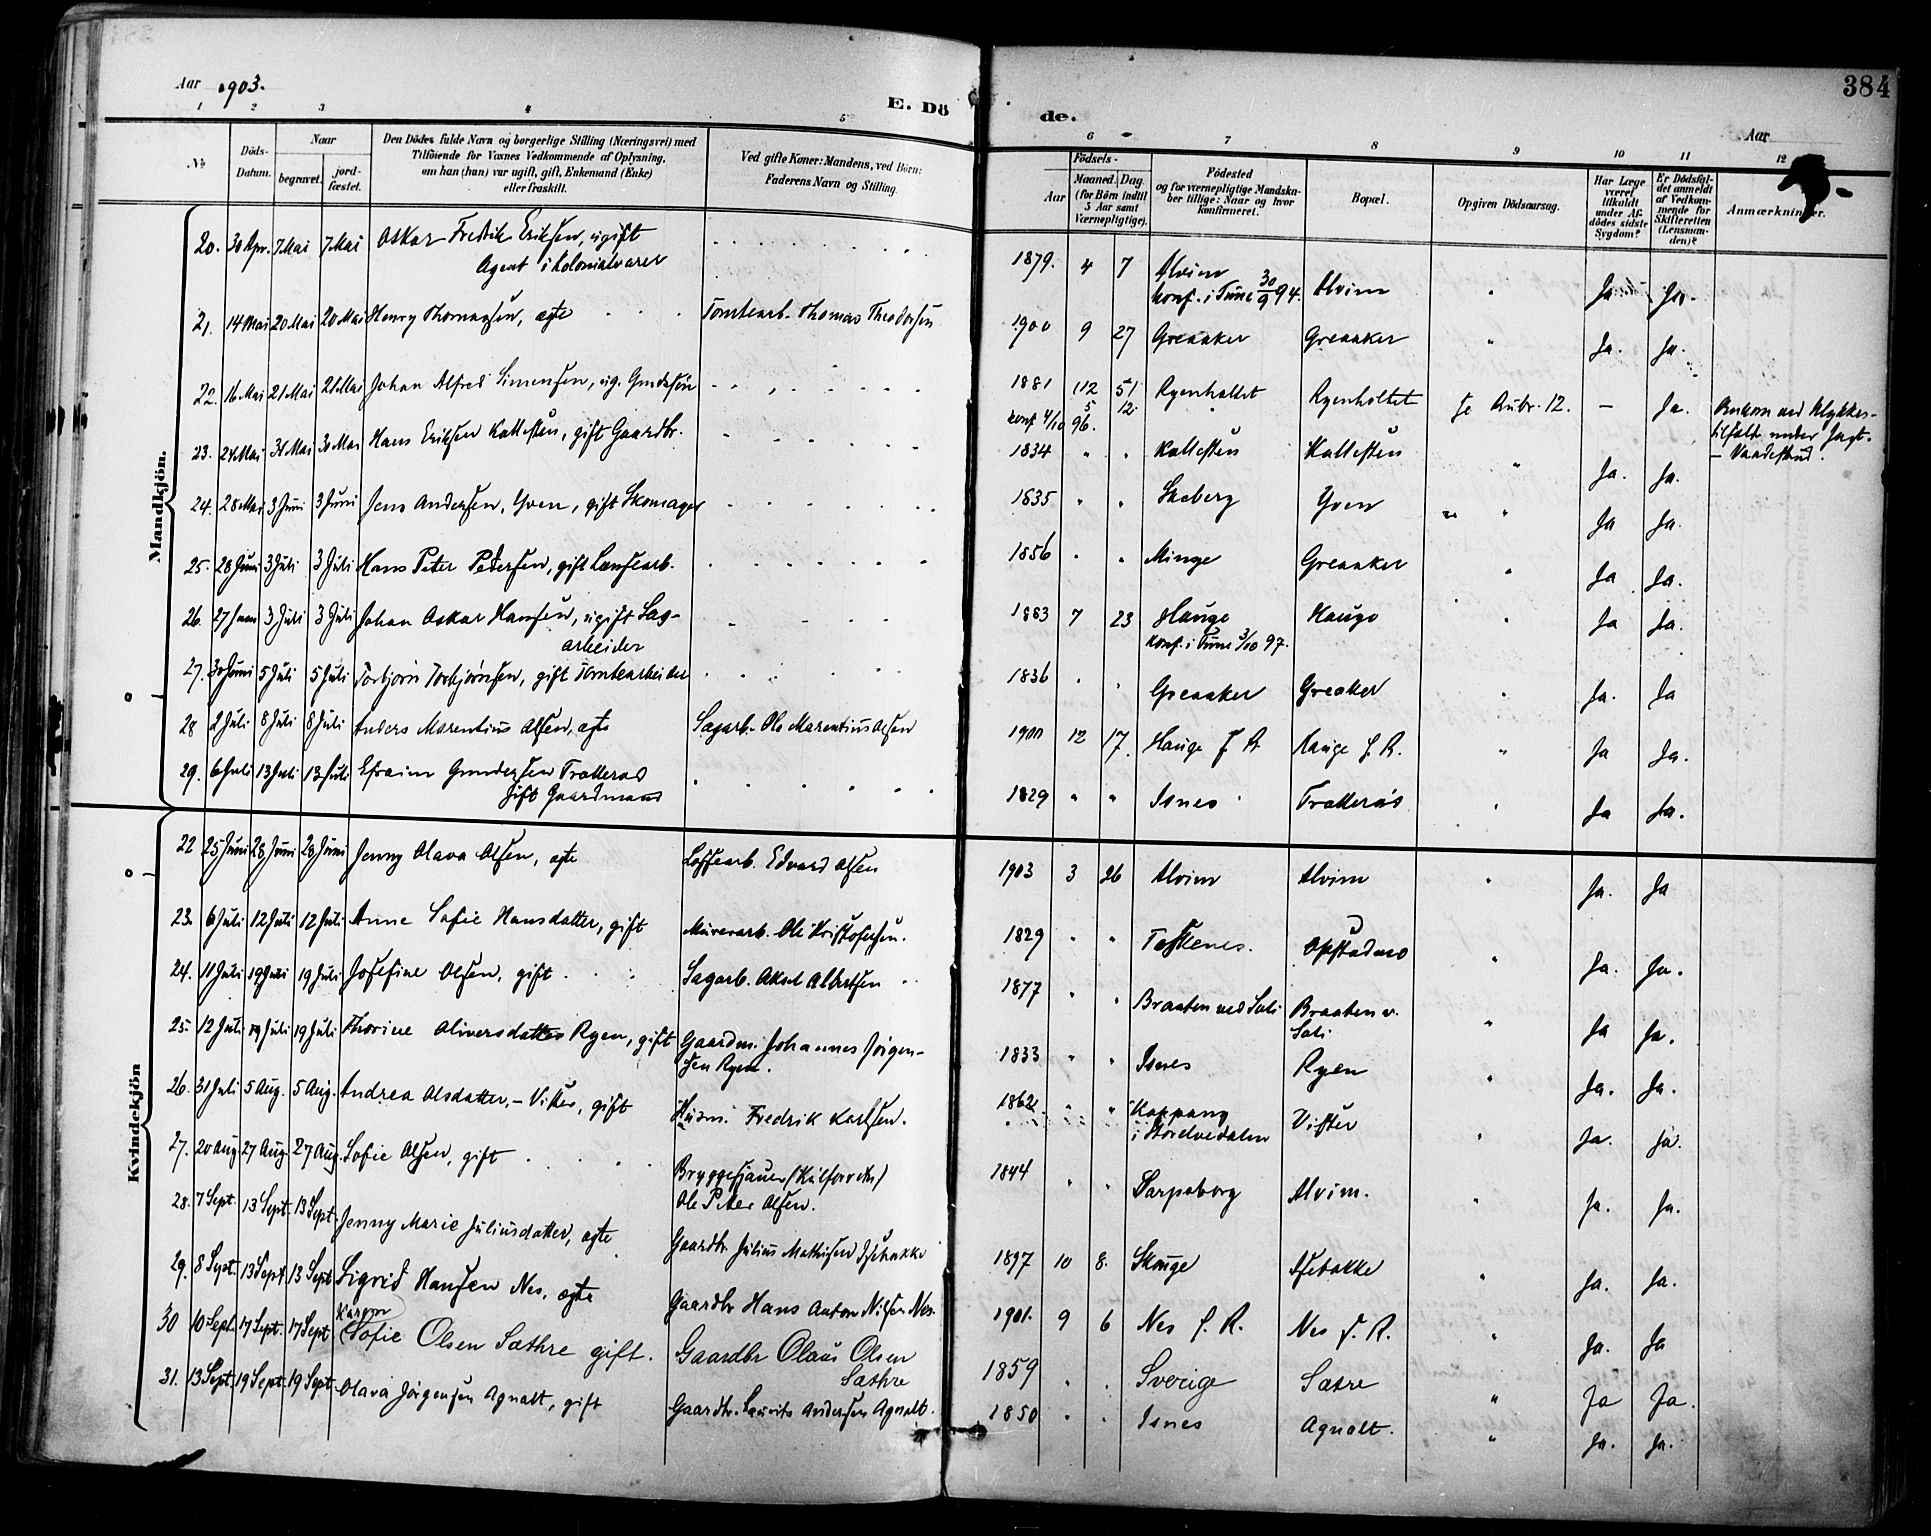 Aar 1903.
384
E. Dö
de.
Aar
1 2 3 4 5 6 7 8 9 10 11 12
No
Döds-
Datum.
Naar
begravet.
jord-
fæstet.
Den Dödes fulde Navn og borgerlige Stilling (Næringsvei) med
Tilföiende for Voxnes Vedkommende af Oplysning,
om han (hun) var ugift, gift, Enkemand (Enke)
eller fraskilt.
Ved gifte Koner: Mandens, ved Börn:
Faderens Navn og Stilling.
Födsels-
Aar
Maaned. Dag.
(for Börn indtil
5 Aar samt
Værnepligtige).
Födested
og for værnepligtige Mandska-
ber tillige: Naar og hvor
konfirmeret.
Bopæl.
Opgiven Dödsaarsag.
Har Læge
været
tilkaldt
under Af-
dödes sidste
Sygdom?
Er Dödsfal-
det anmeldt
af Vedkom-
mende for
Skifteretten
(Lensman-
den)?
Anmærkninger.
Mandkjön.
20. 30 Apr. 7 Mai 7 Mai Oskar Fredrik Eriksen, ugift 1879. 4 7 Alvim Alvim " Ja Ja.
Agent i Kolonialvarer konf. i Tune 30/9 94.
21. 14 Mai 20 Mai 20 Mai Henry Thomassen, ægte Tomtearb. Thomas Theodorsen 1900 9 27 Greaaker Greaaker " Ja. Ja.
22. 16 Mai 21 Mai 21 Mai Johan Alfred Simensen, ug. 1881 12 Ryenholtet Ryenholtet Se Rubr. 12. – Ja. Omkom ved Ulykkes-
konf 4/10 96. tilfælde under Jagt.
– Vaadeskud.
23. 24 Mai Mai Mai Hans Eriksen Kallesten, gift Gaardbr. 1834 " " Kallesten Kallesten " Ja. Ja.
24. 28 Mai 3 Juni 3 Juni Jens Andersen, Yven, gift Skomager 1835 " " Skeberg Yven " " Ja Ja.
25. 28 Juni 3 Juli 3 Juli Hans Peter Pedersen, gift Lænsearb. 1856 " " Minge Greaaker " Ja Ja.
26. 27 Juni 3 Juli 3 Juli Johan Oskar Hansen, ugift Sag- 1883 7 23 Hauge Hauge " Ja Ja.
arbeider konf. i Tune 3/10 97.
27. 30 Juni 5 Juli 5 Juli Torbjörn Torbjörnsen, gift Tomtearbeider 1836 " " Greaaker Greaker " Ja. Ja
28 2 Juli 8 Juli 8 Juli Anders Marentius Olsen, ægte Sagarb. Ole Marentius Olsen 1900 12 17. Hauge f. R. Hauge f. R. " Ja Ja.
29. 6 Juli 13 Juli 13 Juli Efraim Gundersen Tralleraas 1829 " " Isnes Tralleraas " Ja Ja.
gift Gaardmand
Kvindekjön
22 25 Juni 28 Juni 28 Juni Jenny Olava Olsen, ægte Lossearb. Edvard Olsen 1903 3 26 Alvim Alvim " Ja. Ja
23. 6 Juli 12 Juli 12 Juli Anne Sofie Hansdatter, gift Murerarb. Ole Kristofersen. 1829 " " Opstadmo " Ja. Ja.
24. 11 Juli 19 Juli 19 Juli Josefine Olsen, gift Sagarb. Aksel Albertsen 1877 " " Braaten ved Soli Braaten v. " Ja Ja.
Soli
25. 12 Juli 19 Juli 19 Juli Thorine Oliversdatter Ryen, gift Gaardm. Johannes Jörgen- 1833 " " Isnes Ryen " Ja. Ja.
sen Ryen.
26. 31 Juli 5 Aug. 5 Aug. Andrea Olsdatter, – Vister, gift Husm. Fredrik Karlsen. 1862 " " Koppang Vister " Ja. Ja.
i Storelvedalen
27. 20 Aug 27 Aug. 27 Aug. Sofie Olsen, gift Bryggesjauer 1844 " " Sarpsborg Alvim. " Ja. Ja.
Ole Peter Olsen.
28. 7 Sept. 13 Sept. 13 Sept. Jenny Marie Juliusdatter, ægte Gaardbr. Julius Mathisen 1897 10 8. Skouge " Ja. Ja.
29. 8 Sept. 13 Sept. 13 Sept Sigrid Hansen Nes, ægte Gaardbr Hans Anton Nilsen Nes. 1901. 9 6 Nes f. R. Nes f. R. " Ja. Ja
Karen
30 10 Sept. 17 Sept. 17 Sept Sofie Olsen Sæthre gift. Gaardbr Olaus Olsen 1859 " " Sverige Sætre " Ja Ja.
Sæthre
31. 13 Sept. 19 Sept. 19 Sept. Olava Jörgensen Agnalt, gift Gaardbr. Laurits Andersen Agnalt. 1850 " " Isnes Agnalt. " Ja. Ja.